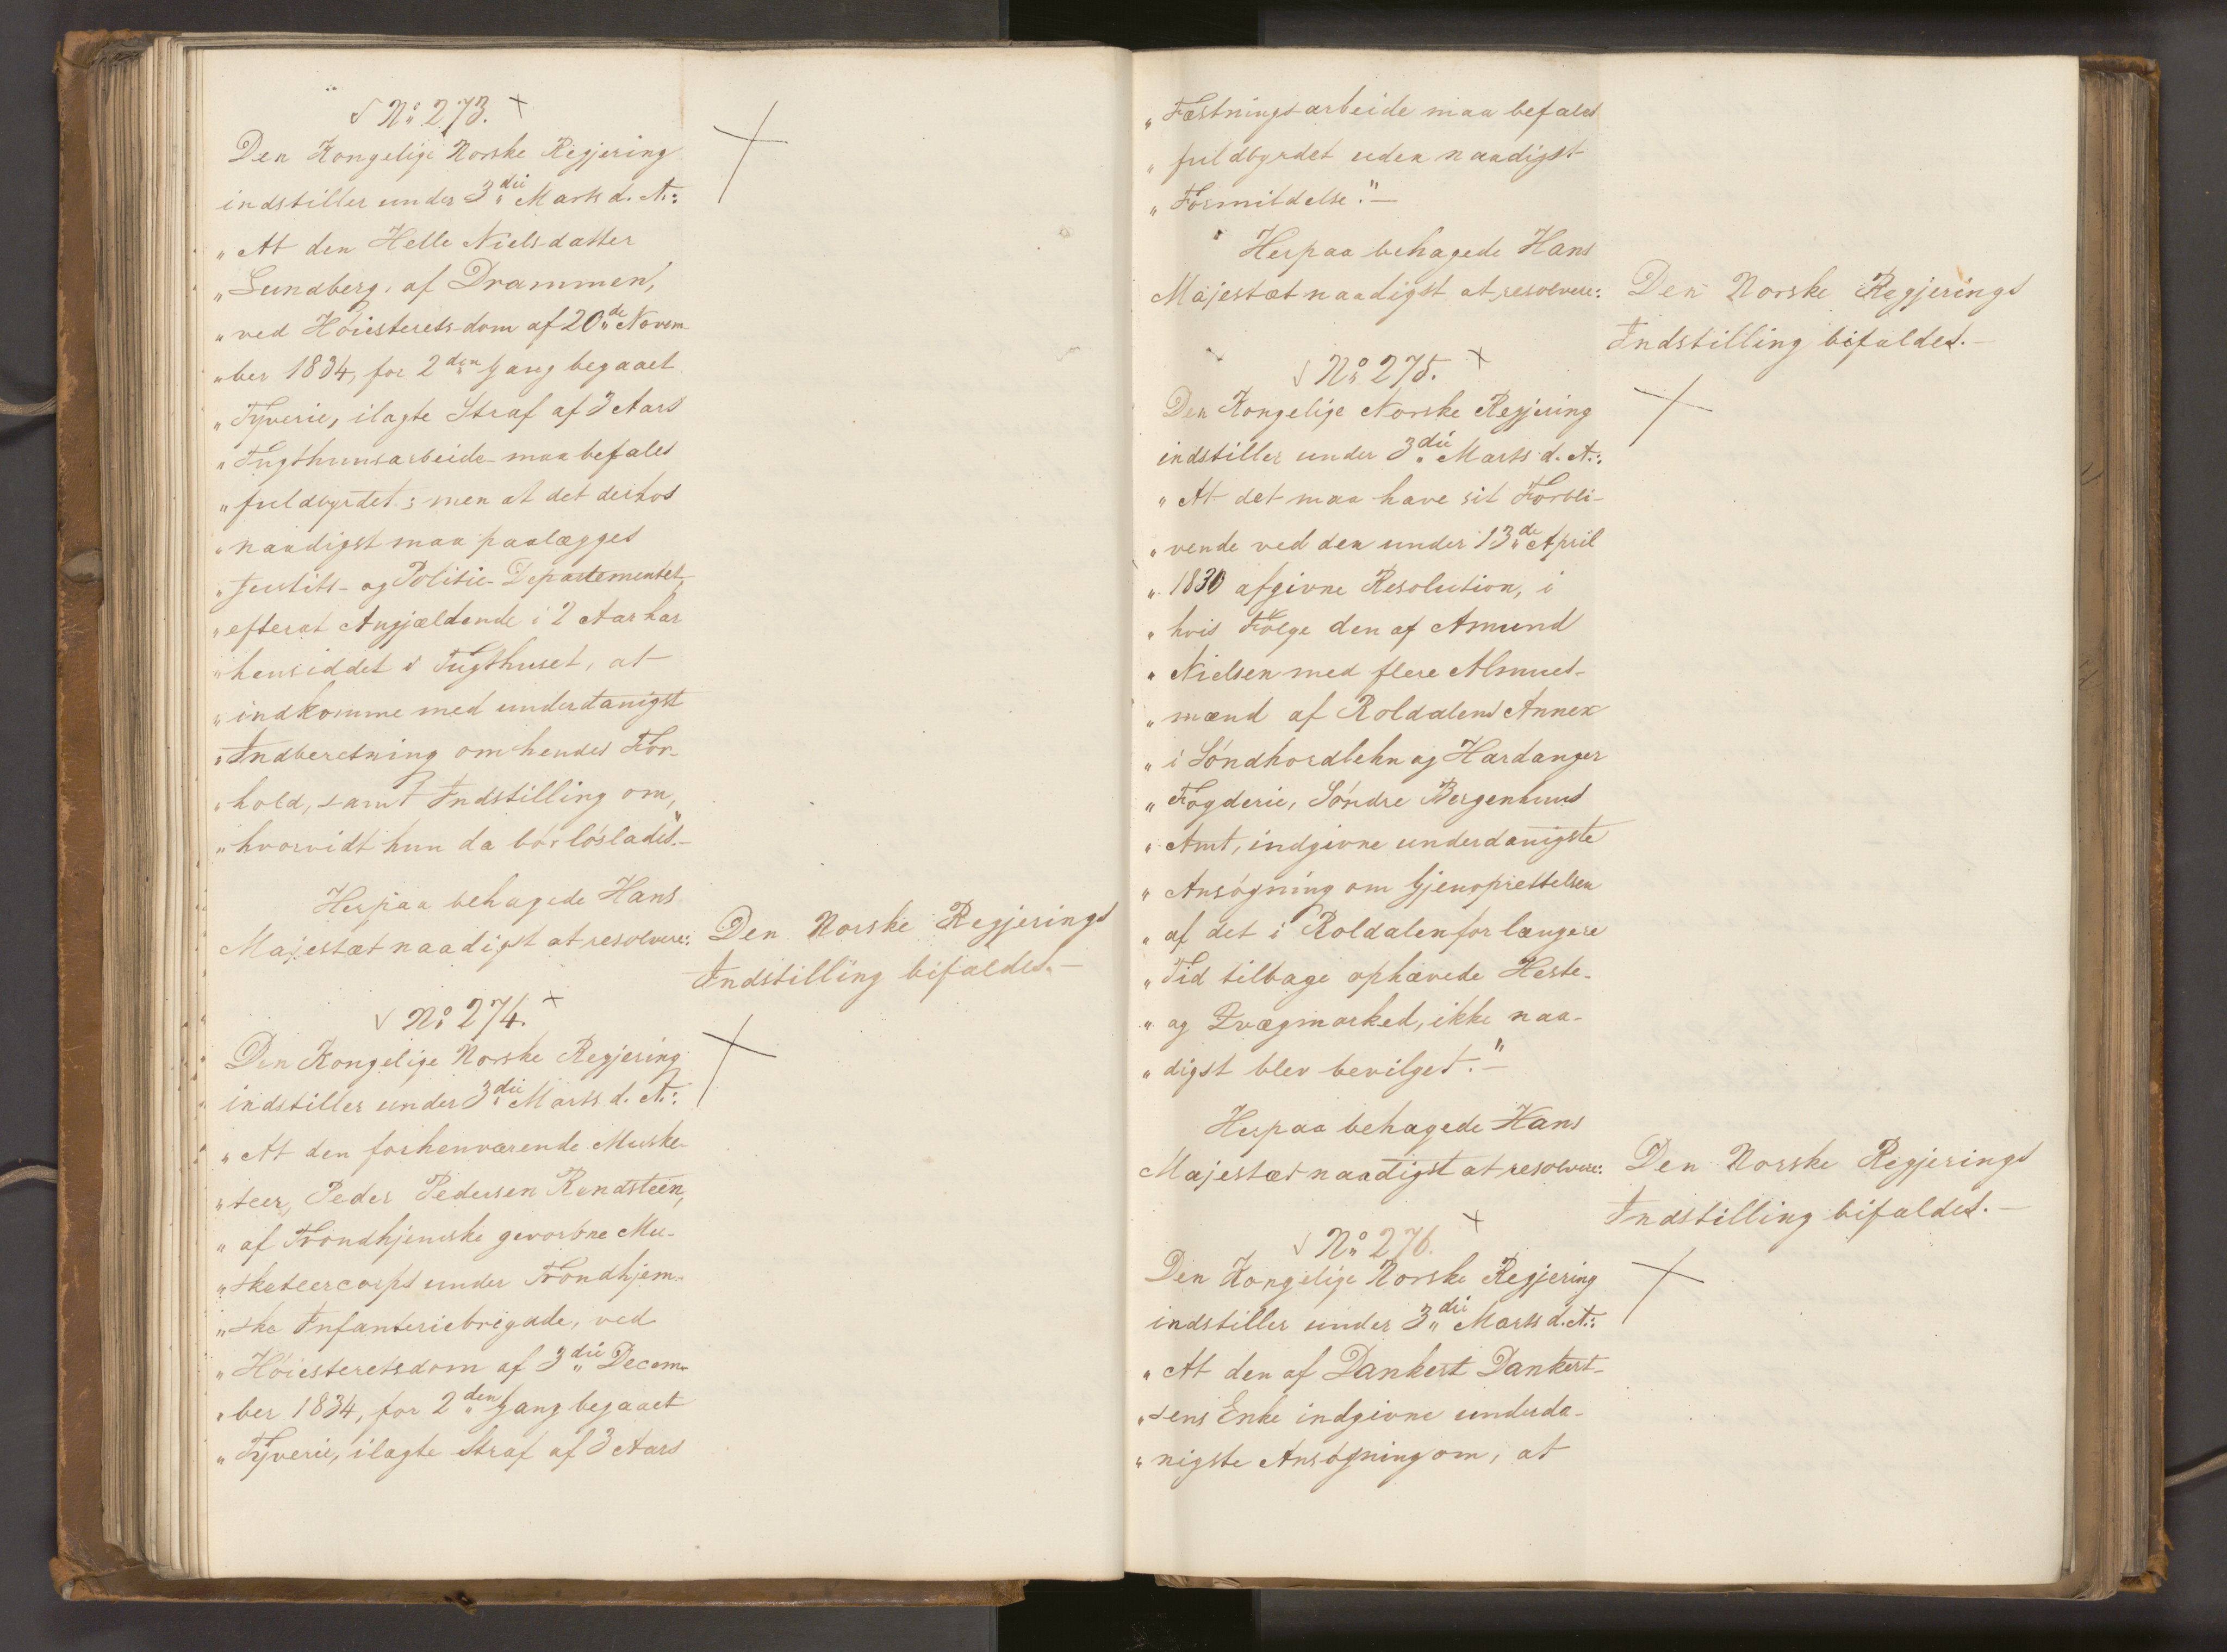 √ No 273. ×
Den Kongelige Norske Regjering
indstiller under 3die Marts d. A.:
„At den Helle Nielsdatter
„Sundberg, af Drammen,
„ved Höiesteretsdom af 20de Novem-
„ber 1834, for 2den Gang begaaet
„Tyverie, ilagte Straf af 3 Aars
„Tugthuusarbeide maa befales
„fuldbyrdet; men at det derhos
„naadigst maa paalægges
„Justits- og Politie-Departementet,
„efterat Angjældende i 2 Aar har
„hensiddet i Tugthuset, at
„indkomme med underdanigst
„Indberetning om hendes For-
„hold, samt Indstilling om,
„hvorvidt hun da bör löslades."–
Herpaa behagede Hans
Majestæt naadigst at resolvere:
Den Norske Regjerings
Indstilling bifaldes.–
√ No 274. ×
Den Kongelige Norske Regjering
indstiller under 3die Marts d. A.:
„At den forhenværende Muske-
„teer, Peder Pedersen Randsteen,
„af Trondhjemske gevorbne Mu-
„sketeercorps under Trondhjem-
„ske Infanteriebrigade, ved
„Höiesteretsdom af 3die Decem-
„ber 1834, for 2den Gang begaaet
„Tyverie, ilagte Straf af 3 Aars
„Fæstningsarbeide maa befales
„fuldbyrdet uden naadigst
„Formildelse."–
Herpaa behagede Hans
Majestæt naadigst at resolvere:
Den Norske Regjerings
Indstilling bifaldes.–
√ No 275. ×
Den Kongelige Norske Regjering
indstiller under 3die Marts d. A.:
„At det maa have sit Forbli-
„vende ved den under 13de April
„1830 afgivne Resolution, i
„hvis Fölge den af Amund
„Nielsen med flere Almues-
„mænd af Roldalens Annex
„i Söndhordlehn og Hardanger
„Fogderie, Söndre Bergenhuus
„Amt, indgivne underdanigste
„Ansögning om Gjenoprettelsen
„af det i Roldalen for længere
„Tid tilbage ophævede Heste-
„og Qvægmarked, ikke naa-
„digst blev bevilget."–
Herpaa behagede Hans
Majestæt naadigst at resolvere:
Den Norske Regjerings
Indstilling bifaldes.–
√ No 276. ×
Den Kongelige Norske Regjering
indstiller under 3die Marts d. A.:
„At den af Dankert Dankert-
„sens Enke indgivne underda-
„nigste Ansögning om, at